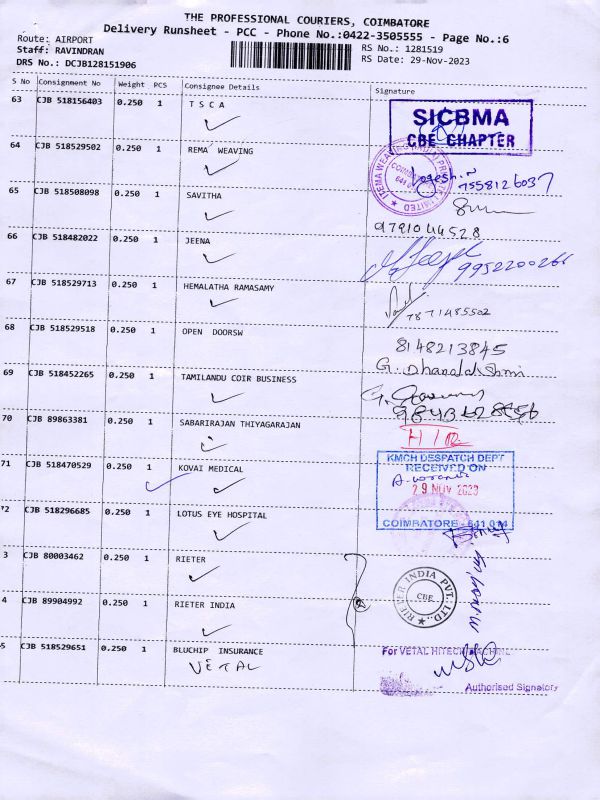 THE PROFESSIONAL COURIERS, COIMBATORE
Delivery Runsheet - PCC - Phone No.:0422-3505555 - Page No.:6
Route: AIRPORT
Staff: RAVINDRAN
DRS No.: DCJB128151906
RS No.: 1281519
RS Date: 29-Nov-2023
S No Consignment No Weight PCS Consignee Details Signature
63 CJB 518156403 0.250 1 T S C A
SICBMA
CBE CHAPTER
64 CJB 518529502 0.250 1 REMA WEAVING
7558126037
65 CJB 518508098 0.250 1 SAVITHA
9791044528
66 CJB 518482022 0.250 1 JEENA
9952200266
67 CJB 518529713 0.250 1 HEMALATHA RAMASAMY
7871485502
68 CJB 518529518 0.250 1 OPEN DOORSW
8148213845
69 CJB 518452265 0.250 1 TAMILANDU COIR BUSINESS
70 CJB 89863381 0.250 1 SABARIRAJAN THIYAGARAJAN
71 CJB 518470529 0.250 1 KOVAI MEDICAL
KMCH DESPATCH DEPT
RECEIVED ON
29 NOV 2023
COIMBATORE - 641 014
72 CJB 518296685 0.250 1 LOTUS EYE HOSPITAL
3 CJB 80003462 0.250 1 RIETER
RIETER INDIA PVT. LTD.
CBE
4 CJB 89904992 0.250 1 RIETER INDIA
5 CJB 518529651 0.250 1 BLUCHIP INSURANCE
VETAL
For VETAL HITECH
Authorised Signatory